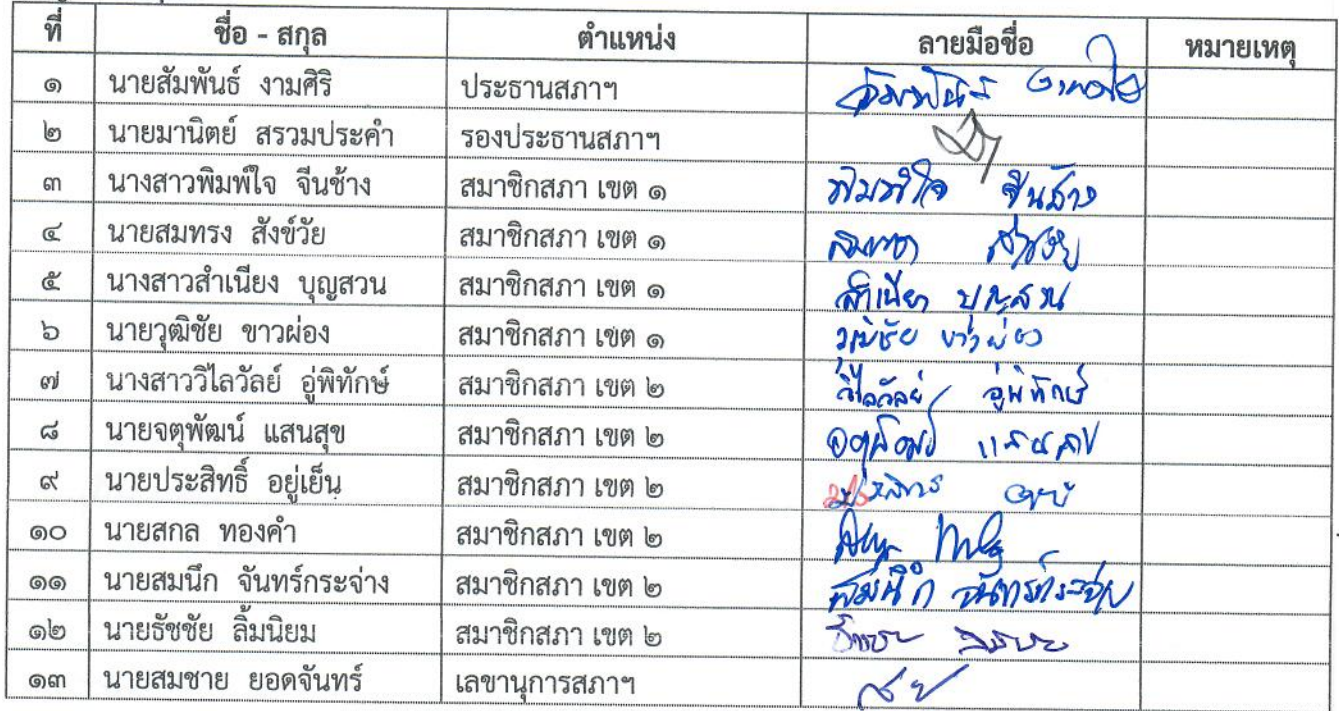 ที่ ชื่อ - สกุล ตำแหน่ง ลายมือชื่อ หมายเหตุ
๑ นายสัมพันธ์ งามศิริ ประธานสภาฯ
๒ นายมานิตย์ สรวมประคำ รองประธานสภาฯ
๓ นางสาวพิมพ์ใจ จีนช้าง สมาชิกสภา เขต ๑ พิมพ์ใจ จีนช้าง
๔ นายสมทรง สังข์วัย สมาชิกสภา เขต ๑
๕ นางสาวสำเนียง บุญสวน สมาชิกสภา เขต ๑ สำเนียง บุญสวน
๖ นายวุฒิชัย ขาวผ่อง สมาชิกสภา เขต ๑ วุฒิชัย ขาวผ่อง
๗ นางสาววิไลวัลย์ อู่พิทักษ์ สมาชิกสภา เขต ๒ วิไลวัลย์ อู่พิทักษ์
๘ นายจตุพัฒน์ แสนสุข สมาชิกสภา เขต ๒
๙ นายประสิทธิ์ อยู่เย็น สมาชิกสภา เขต ๒
๑๐ นายสกล ทองคำ สมาชิกสภา เขต ๒
๑๑ นายสมนึก จันทร์กระจ่าง สมาชิกสภา เขต ๒ สมนึก จันทร์กระจ่าง
๑๒ นายธัชชัย ลิ้มนิยม สมาชิกสภา เขต ๒
๑๓ นายสมชาย ยอดจันทร์ เลขานุการสภาฯ